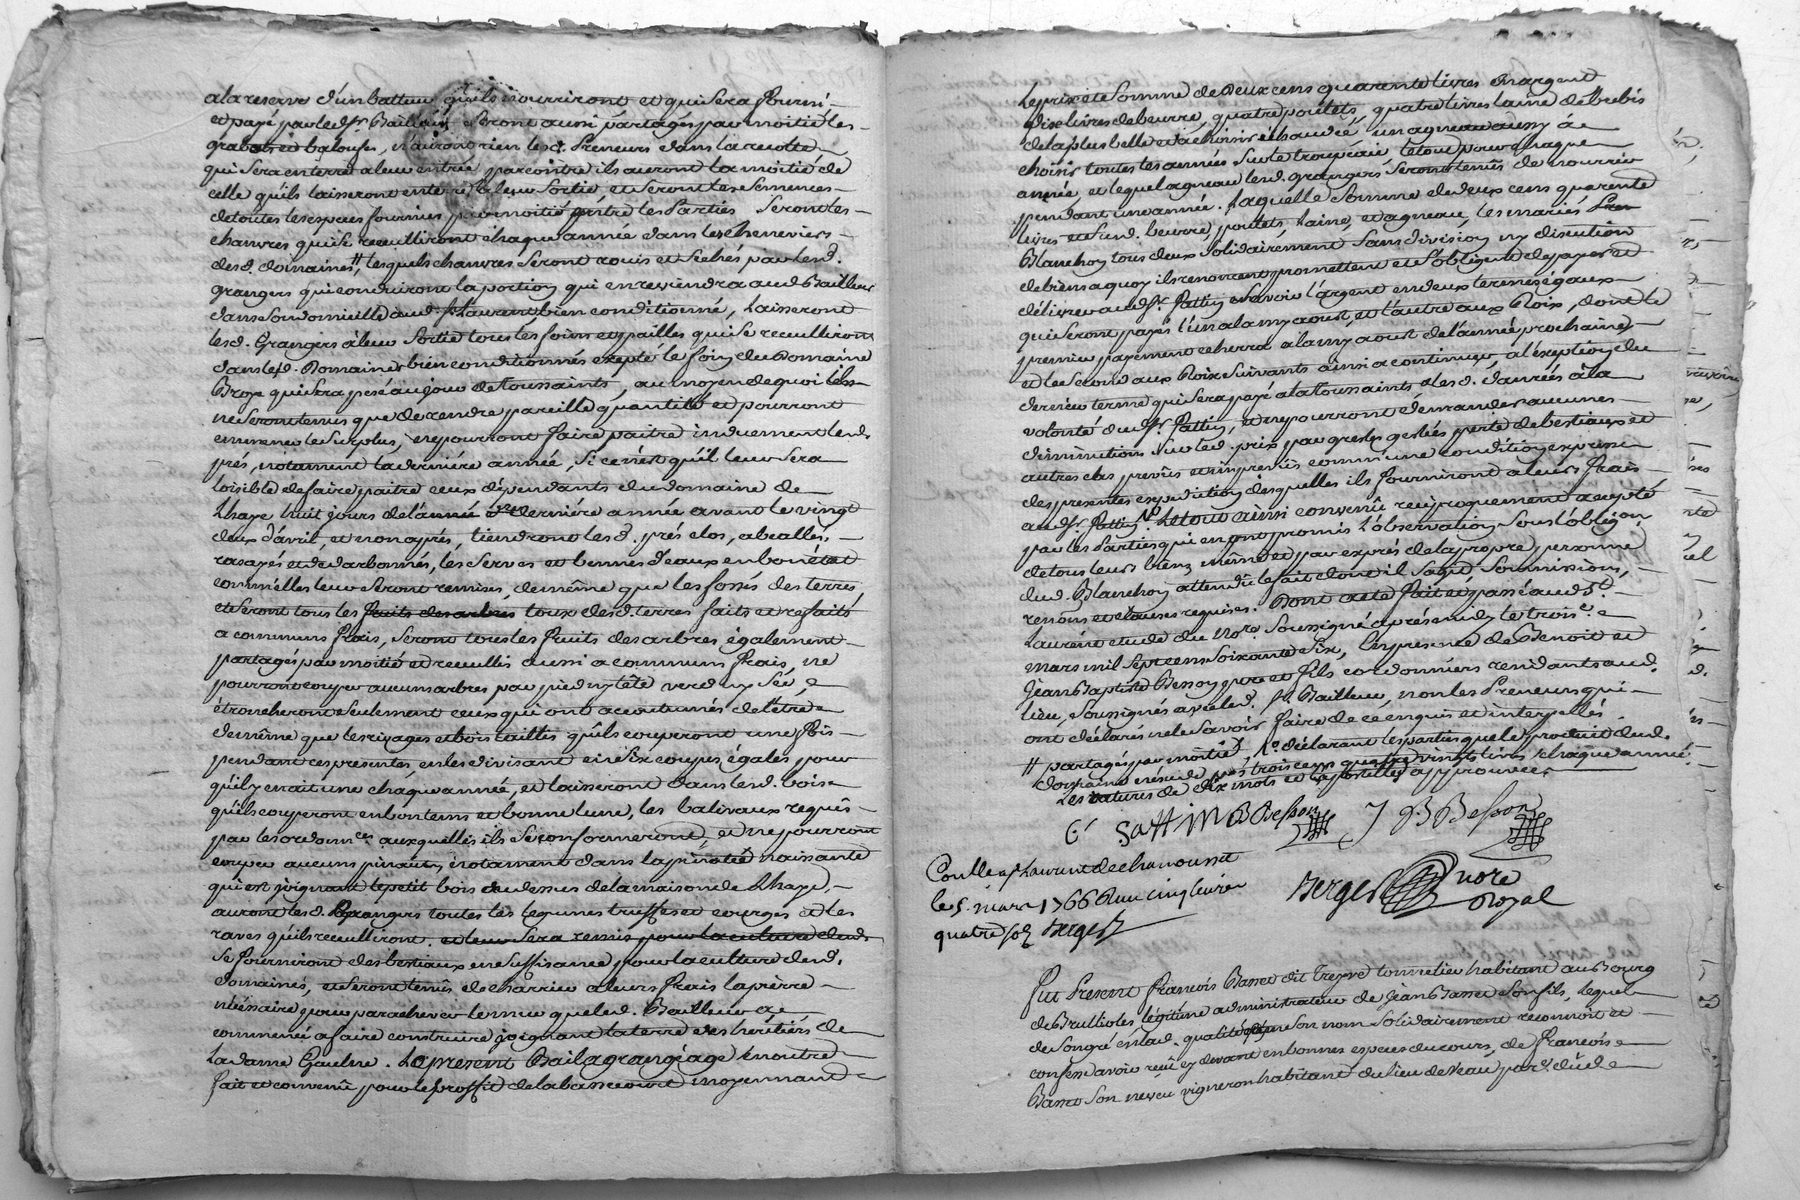 a la reserve d'un batteur qu'ils nourriront et qui sera fourni
et payé par led. Sr. Bailleur seront aussi partagés par moitié les
et balouses, n'auront rien les d. Preneurs dans la recolte
qui sera en terre a leur entrée, par contre ils auront la moitié de
celle qu'ils laisseront en terre a leur sortie et seront les semences
de toutes les especes fournies par moitié entre les Parties seront les
chanvres qui se recuilliront chaque année dans les cheneviers
desd. domaines # lesquels chanvres seront rouis et séchés par lesd.
grangers qui conduiront la portion qui en reviendra aud. Bailleur
dans son domicille aud. St. Laurent, bien conditionné, Laisseront
lesd. Grangers a leur sortie tous les foins et pailles qui se recuilliront
dans lesd. Domaines bien conditionnés exepté le foin du Domaine
qui sera pesé au jour de Toussaints, au moyen de quoi ils
ne seront tenus que de rendre pareille quantité et pourront
emmener le surplus, ne pourront faire paitre induement lesd.
prés, notament la derniére année, si ce n'est qu'il leur sera
loisible de faire paitre ceux dépendants du domaine de
Lhaye huit jours de l'année derniére année avant le vingt
deux d'avril, et non aprés, tiendront lesd. prés clos, abeallés,
rasayés et dedarbonnés, les serves et bennes d'eaux en bon état
comm'elles leur seront remises, de même que les fossés des terres
et seront tous les fruits des arbres toux desd. terres faits et refaits
a communs frais, seront tous les fruits des arbres également
partagés par moitié et recuillis aussi a communs frais, ne
pourront couper aucuns arbres par pied ny tête verd ny séc,
étroncheront seulement ceux qui ont acoutumés de l'être
de même que les rivages et bois taillés qu'ils couperont une fois
pendant ces presentes en les divisant en six coupes égales pour
qu'il y en ait une chaque année, et laisseront dans lesd. bois
qu'ils couperont en bon tems et bonne lune, les balivaux requis
par les ordonnces. auxquelles ils se conformeront, et ne pourront
couper aucuns pinaux, notament dans la naissante
qui est joignant le petit bois au dessus de la maison de Lhaye,
auront lesd. Grangers toutes les legumes truffes et courges et les
raves qu'ils recuilliront. et leur sera remis pour la culture desd.
se fourniront des bestiaux en suffisance pour la culture desd.
domaines, et seront tenus de charrier a leurs frais la pierre
nécéssaire pour parachever le mur que led. Bailleur a
commencé a faire construire joignant la terre des héritiers de
La dame Gueline. Le present Bail a grangéage énoutre
fait et convenu pour le proffit de la bassecourt moyennant
Le prix et somme de deux cens quarente livres en argent
dix livres de beurre, quatre poulets, quatre livres laine de brebis
de la plus belle et a choisir échaudée, un agneau aussy a
choisir toutes les années sur le troupeau, le tout pour chaque
année, et lequel agneau lesd. grangers seront tenus de nourrir
pendant une année. Laquelle somme de deux cens quarente
livres et susd. beurre, poulets, laine, et agneau, les mariés
Blanchon tous deux solidairement sans division ny discution
de biens a quoy ils renoncent promettent et s'obligent de payer et
délivrer aud. Sr. Pattin savoir l'argent en deux termes égaux
qui seront payés l'un a la my aoust, et l'autre aux Roix, dont le
premier payement écherra a la my aoust de l'année prochaine
et le second aux Roix suivants ainsi a continuer, a l'éxeption du
dernier terme qui sera payé a la Toussaints et lesd. danrées a la
volonté dud. Sr. Pattin, et ne pourront démander aucunes
diminutions sur led. prix par gresles gelées perte de bestiaux et
autres cas prevûs et imprevûs comme une condition expresse
des presentes expedition desquelles ils fourniront a leurs frais
aud. Sr. Pattin. Le tout ainsi convenu reciproquement acepté
par les Parties qui en ont promis l'observation sous l'obligaon.
de tous leurs biens même et par exprés de la propre personne
dud. Blanchon attendu le fait dont il s'agit, soumissions,
renons et clauses requises. Dont acte fait et passé aud. St.
Laurent etude du Nore. soussigné aprés midy le troise.
mars mil sept cens soixante six, en presence de Benoit et
Jean Baptiste Besson pere et fils cordonniers rendants aud.
lieu, soussignés avec led. Sr. Bailleur, non les Preneurs qui
ont déclarés ne le savoir faire de ce enquis et interpellés
# partagés par moitié. No. déclarant les parties que le produit desd.
domaines excede pas trois cens quatre vingts livres chaque année.
Les ratures de dix mots et apostilles approuvées
Pattin B Besson J B Besson
Conllé a St Laurent de chamousset
le 5. mars 1766 Reçu cinq livres
quatre sols Berger
Berger nore
Royal
Fut Present François Basset dit Treyve tonnelier habitant au Bourg
de Brullioles légitime administrateur de Jean Basset son fils, lequel
de son gré en lad. qualité et en son nom solidairement reconnoit et
confesse avoir reçu cy devant en bonnes especes du cours, de François
Basset son neveu vigneron habitant du lieu de par.